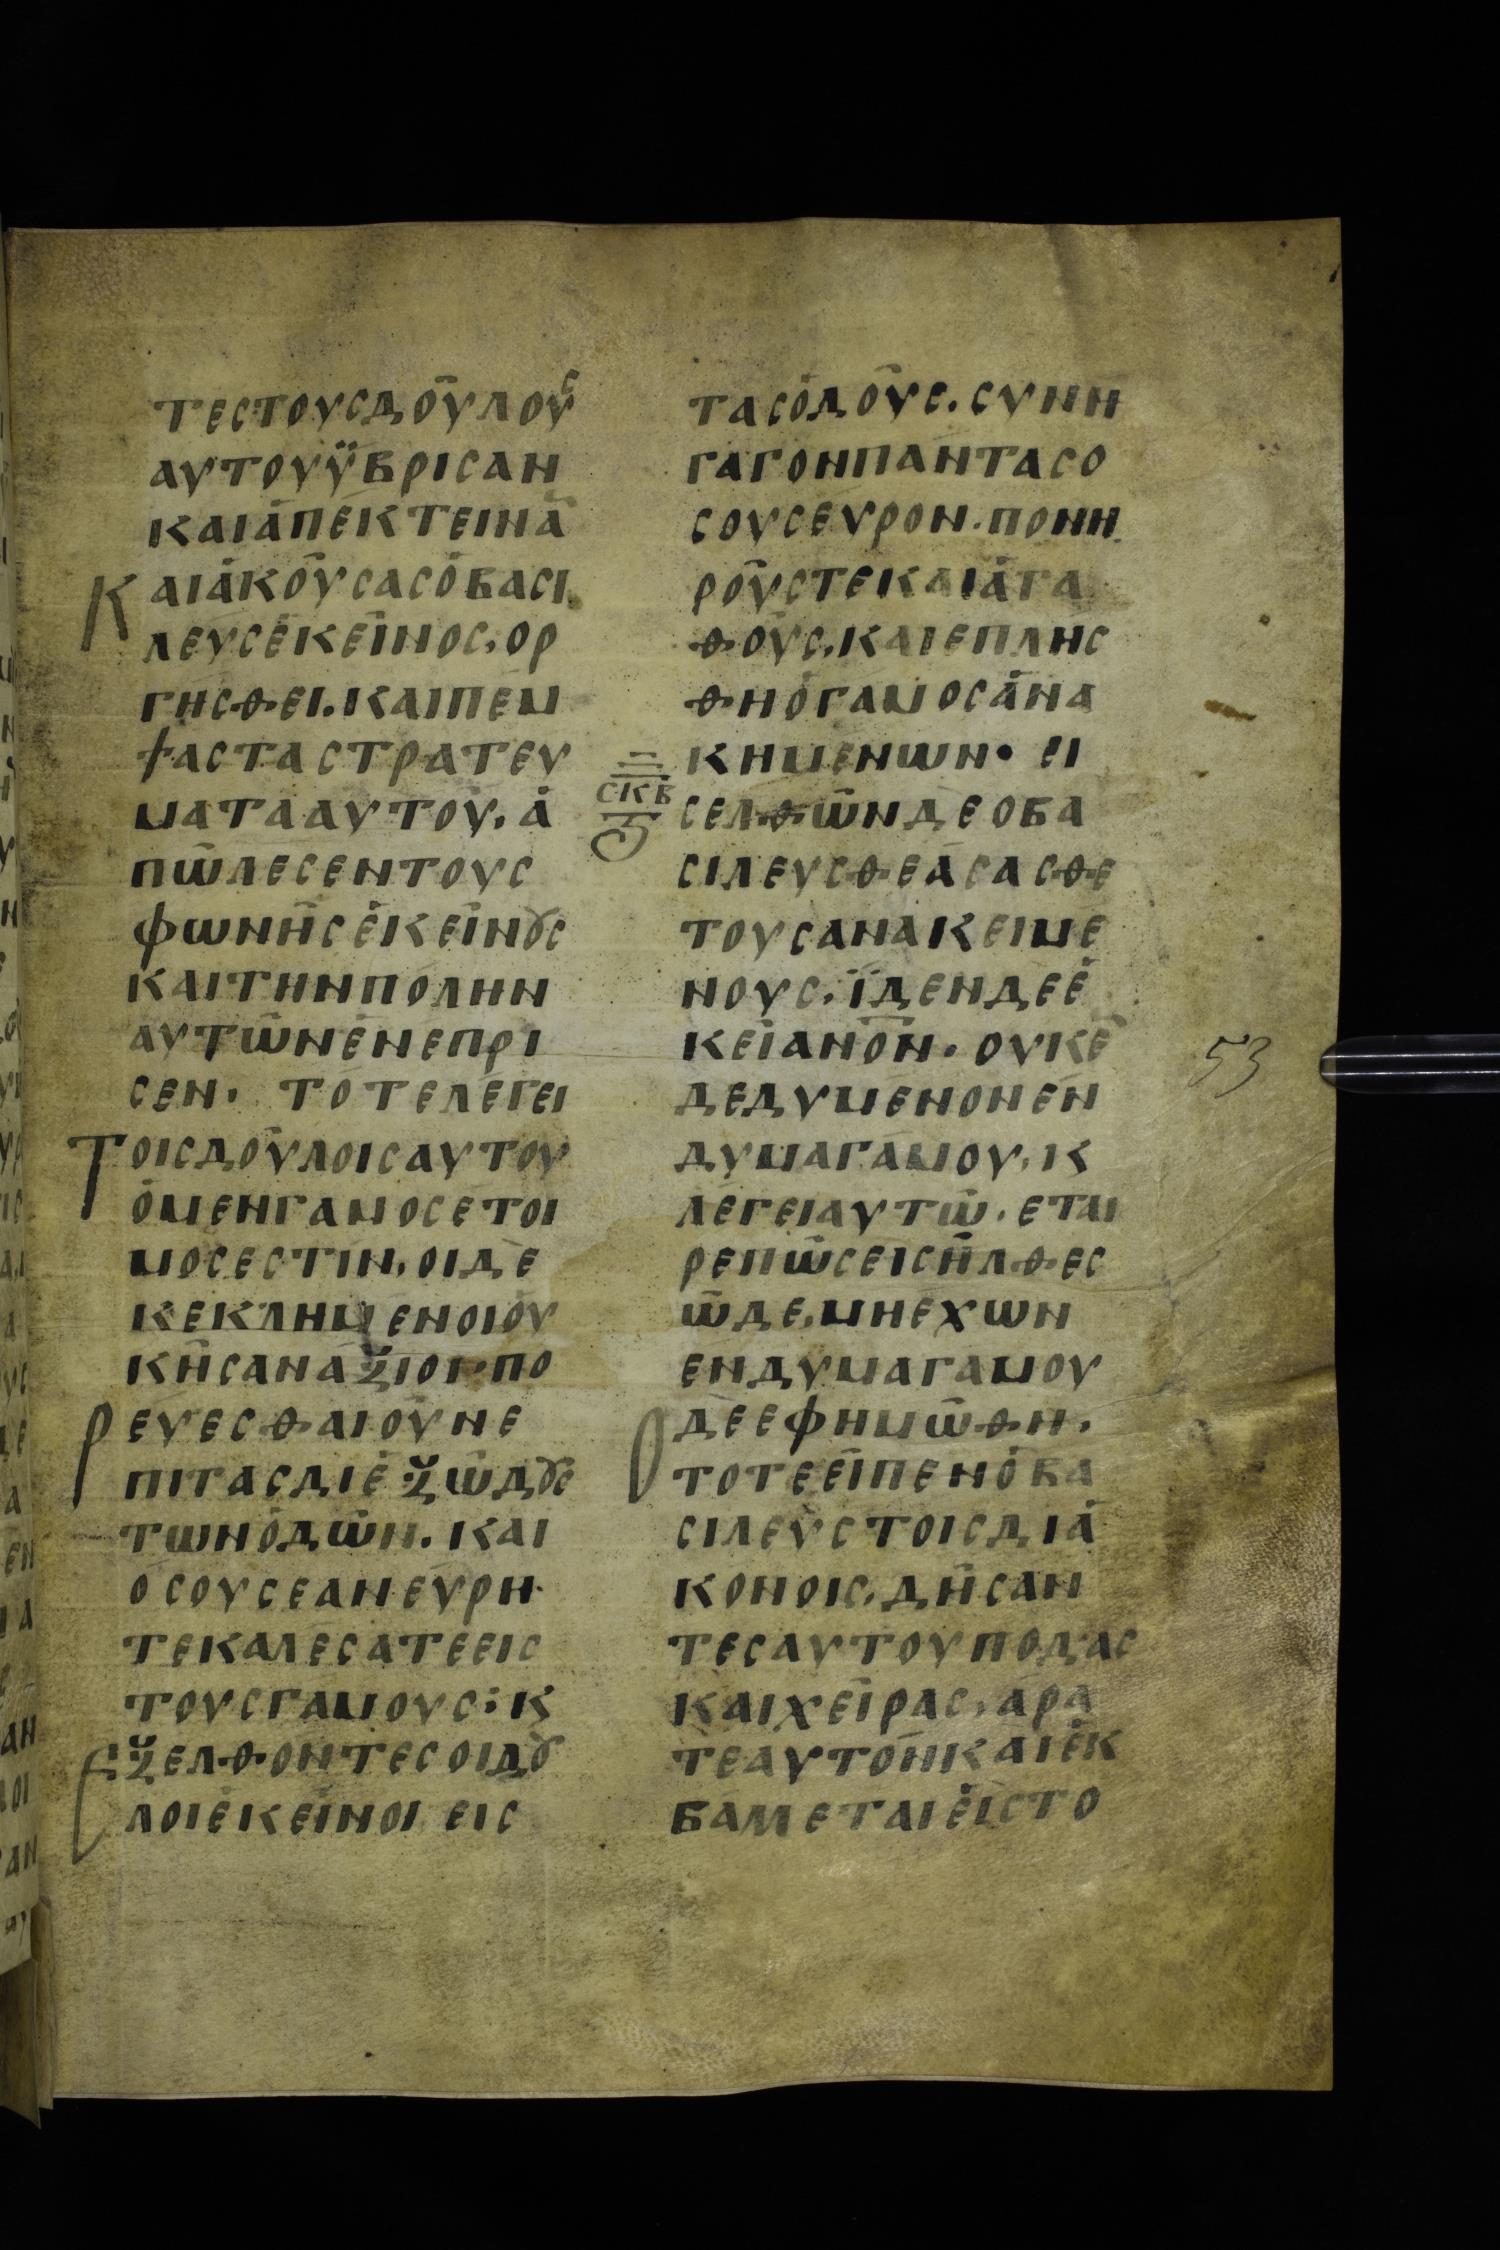 ΤΕCΤΟΥCΔΟΥΛΟΥC
ΑΥΤΟΥΫΒΡΙCΑΝ
ΚΑΙΑΠΕΚΤΕΙΝΑ̅
ΚΑΙΑΚΟΥCΑCΟΒΑCΙ
ΛΕΥCΕΚΕΙΝΟC,ΟΡ
ΓΗCΘΕΙ.ΚΑΙΠΕΜ
ΨΑCΤΑCΤΡΑΤΕΥ
ΜΑΤΑΑΥΤΟΥ,Α
ΠΩΛΕCΕΝΤΟΥC
ΦΩΝΗCΕΚΕΙΝȢC
ΚΑΙΤΗΝΠΟΛΗΝ
ΑΥΤΩΝΕΝΕΠΡΙ
CΕΝ· ΤΟΤΕΛΕΓΕΙ
ΤΟΙCΔΟΥΛΟΙCΑΥΤΟΥ
ΟΜΕΝΓΑΜΟCΕΤΟΙ
ΜΟCΕCΤΙΝ,ΟΙΔΕ
ΚΕΚΛΗΜΕΝΟΙΟΥ
ΚΗCΑΝΑΞΙΟΙ·ΠΟ
ΡΕΥΕCΘΑΙΟΥΝΕ
ΠΙΤΑCΔΙΕΞΩΔȢC
ΤΩΝΟΔΩΝ.ΚΑΙ
ΟCΟΥCΕΑΝΕΥΡΗ·
ΤΕΚΑΛΕCΑΤΕΕΙC
ΤΟΥCΓΑΜΟΥC:Κ
ΕΞΕΛΘΟΝΤΕCΟΙΔȢ
ΛΟΙΕΚΕΙΝΟΙ ΕΙC
ΤΑCΟΔΟΥC.CΥΝΗ
ΓΑΓΟΝΠΑΝΤΑCΟ
CΟΥCΕΥΡΟΝ.ΠΟΝΗ
ΡΟΥCΤΕΚΑΙΑΓΑ
ΘΟΥC,ΚΑΙΕΠΛΗC
ΘΗΟΓΑΜΟCΑΝΑ
ΚΗΜΕΝΩΝ• ΕΙ
CΚΒ
CΕΛΘΩΝΔΕΟΒΑ
CΙΛΕΥCΘΕΑCΑCΘΕ
ΤΟΥCΑΝΑΚΕΙΜΕ
ΝΟΥC,ΪΔΕΝΔΕΕ
ΚΕΙΑΝΟ̅Ν.ΟΥΚΕ̅
ΔΕΔΥΜΕΝΟΝΕΝ
53
ΔΥΜΑΓΑΜΟΥ,Κ
ΛΕΓΕΙΑΥΤΩ.ΕΤΑΙ
ΡΕΠΩCΕΙCΗΛΘΕC
ΩΔΕ,ΜΗΕΧΩΝ
ΕΝΔΥΜΑΓΑΜΟΥ
ΟΔΕΕΦΗΜΩΘΗ.
ΤΟΤΕΕΙΠΕΝΟΒΑ
CΙΛΕΥCΤΟΙCΔΙΑ
ΚΟΝΟΙC,ΔΗCΑΝ
ΤΕCΑΥΤΟΥΠΟΔΑC
ΚΑΙΧΕΙΡΑC,ΑΡΑ
ΤΕΑΥΤΟΝΚΑΙΕΚ
ΒΑΜΕΤΑΙΕΙCΤΟ